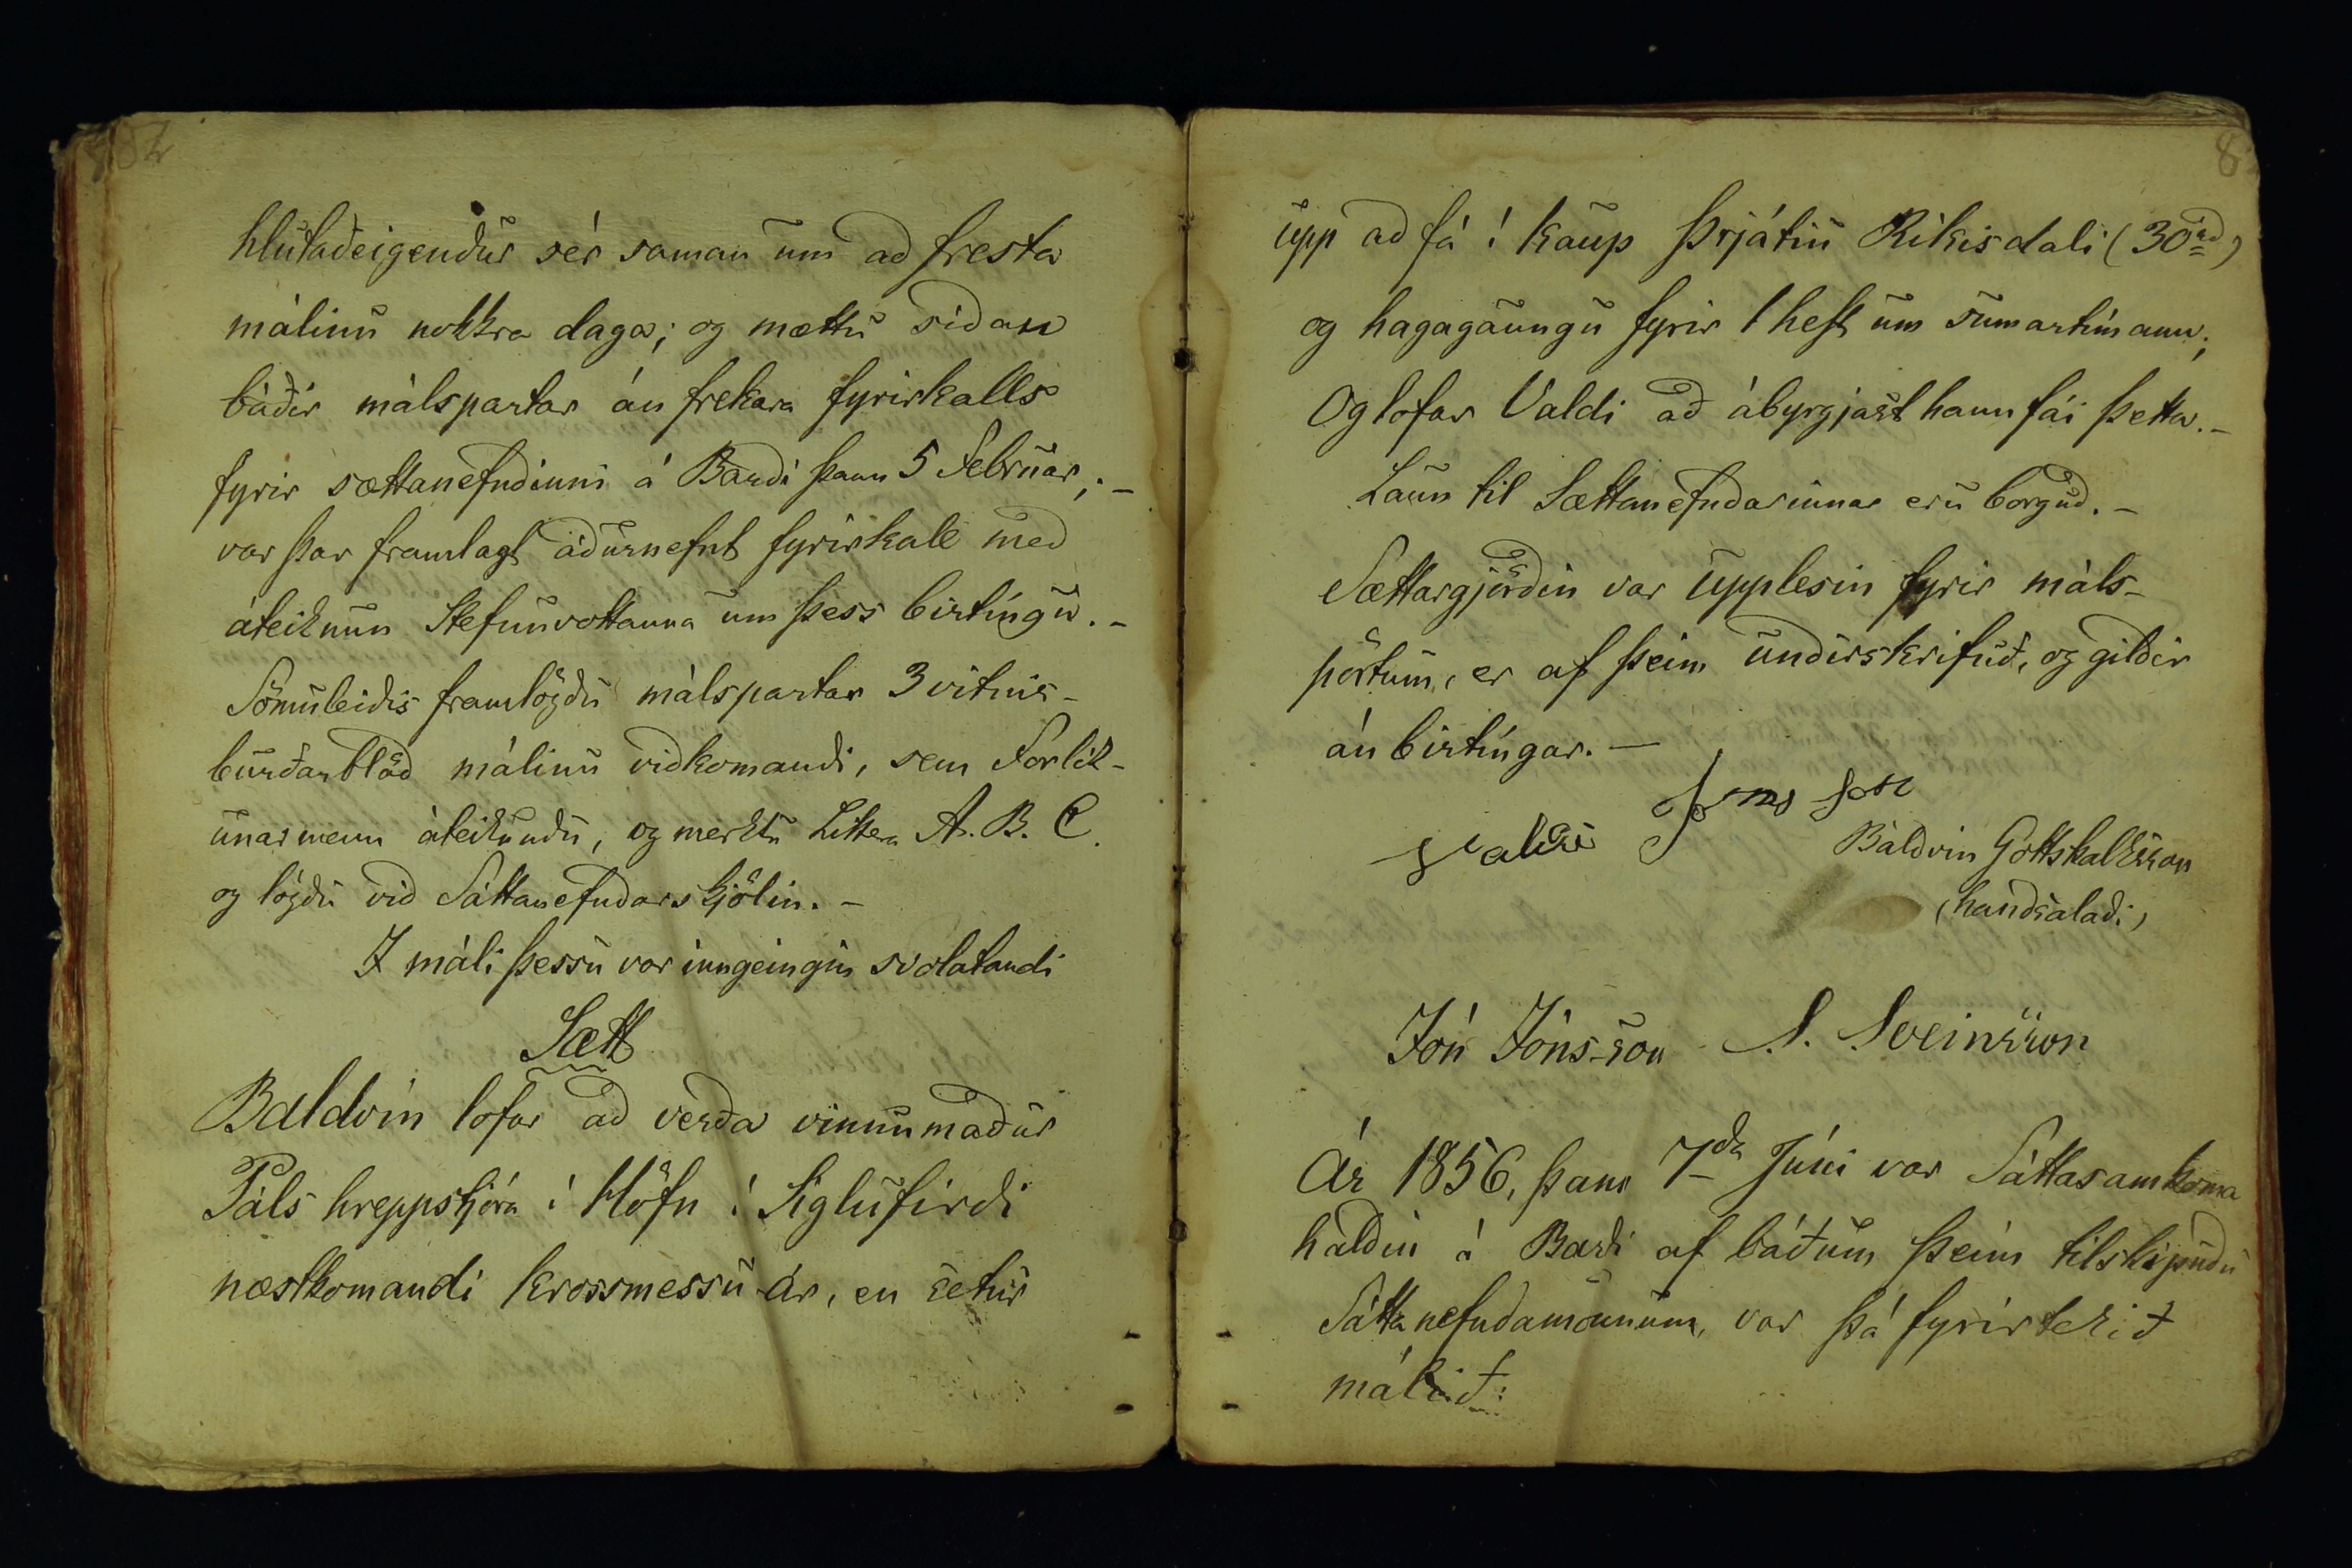 hlutaðeigendur sér saman um að fresta
málinu nokkra daga; og mættu síðan
báðir málspartar án frekara fyrirkalls
fyrir sættanefndinni á Barði þann 5 Februar; –
var þar framlagt áðurnefnt fyrirkall með
áteiknun Stefnuvottanna um þess birtíngu. –
Sömuleiðis framlögðu málspartar 3 vitnis-
burðarblöð málinu viðkomandi, sem Forlík-
unarmenn áteiknuðu, og merktu Littera A. B. C.
og lögðu við Sáttanefndarskjölin. –
I máli þessu var inngeingin svolatandi
Sætt
Baldvin lofar að verða vinnumaður
Páls hreppstjóra í Höfn í Siglufirði
næstkomandi krossmessu-ár, en setur
upp að fá í kaup Þrjátíu Ríkisdali (30 rd)
og hagagaungu fyrir 1 hest um sumartímann;
Og lofar Valdi að ábyrgjast hann fái þetta. –
Laun til Sættanefndarinnar eru borguð. –
Sættargjörðin var upplesin fyrir máls-
pörtum, er af þeim undirskrifuð, og gildir
án birtíngar. –
Valdi Jóns son
Baldvin Gottskalksson
(handsalaði)
Jón Jóns-son S. Sveinsson
Ár 1856, þann 7da Júni var Sáttasamkoma
haldin á Barði af báðum þeim tilskipuðu
Sáttanefndamönnum, var þá fyrirtekið
málið: